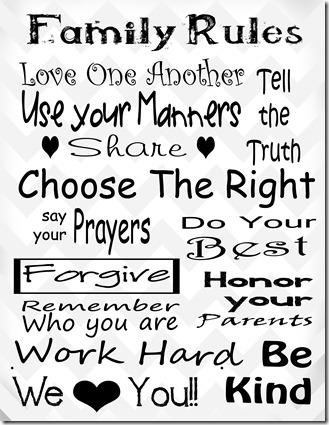 Family Rules
Love One Another
Tell the Truth
Use your Manners
♥ Share ♥
Choose The Right
say your Prayers
Do Your Best
Forgive
Honor your Parents
Remember Who you are
Work Hard
Be Kind
We ♥ You!!